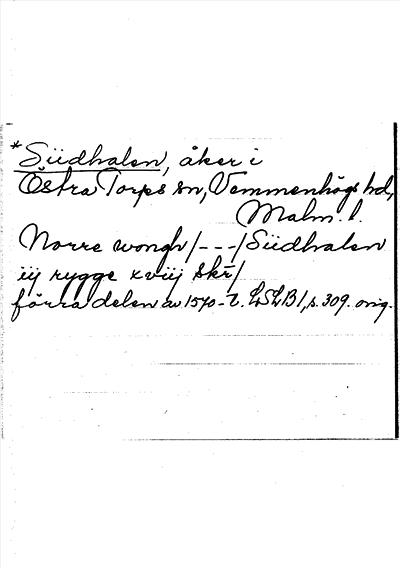 *Siidhalen, åker i
Östra Torps sn, Vemmenhögs hd,
Malm. l.
Norre wongh/---/Siidhalen
iij rygge xviij skr̄/
förra delen av 1570-t. LSLB1, s. 309. orig.